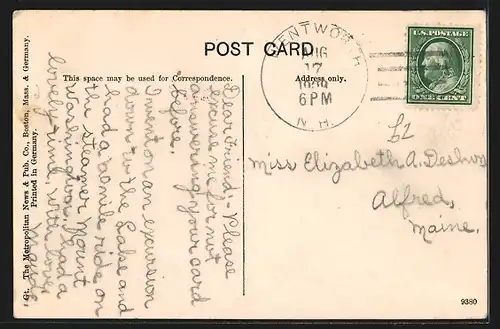 POST CARD
This space may be used for Correspondence.
Address only.
WENTWORTH
AUG
17
6 PM
N. H.
U.S. POSTAGE
ONE CENT
£2
Miss Elizabeth A.
Alfred,
Maine.
Dear Friend - Please
excuse me for not
answering your card
before.
I went on an excursion
down to the Lake and
had a 60 mile ride on
the steamer Mount
Washington. I had a
lovely time. With love,
Maude.
Gt. The Metropolitan News & Pub. Co., Boston, Mass. & Germany.
Printed in Germany.
9380